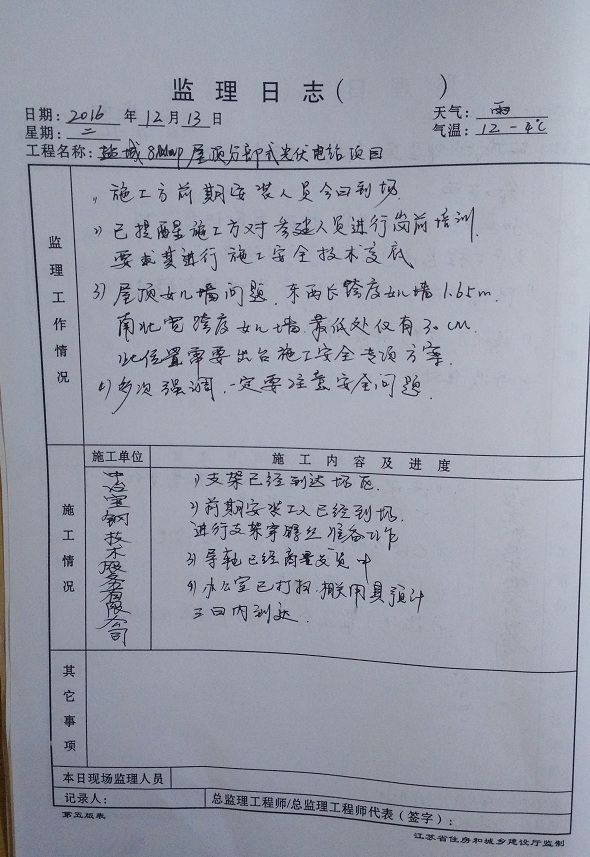 监 理 日 志 (                )
日期: 2016 年 12 月 13 日 天气: 雨
星期: 二 气温: 12 -4℃
工程名称: 盐城 屋顶分部式光伏电站项目
监理工作情况
1) 施工方前期安装人员今日到场.
2) 已提醒施工方对参建人员进行岗前培训.
要求其进行施工安全技术交底
3) 屋顶女儿墙问题. 东西长跨度女儿墙 1.65m.
南北宽跨度女儿墙. 最低处仅有 30cm.
此位置需要出台施工安全专项方案.
4) 多次强调. 一定要注意安全问题.
施工情况
施工单位 施 工 内 容 及 进 度
中冶宝钢技术服务有限公司
1) 支架已经到达场区.
2) 前期安装工人已经到场.
进行支架穿螺丝准备工作
3) 导轨已经
4) 办公室已打扫. 相关用具预计
三日内到达.
其它事项
本日现场监理人员
记录人: 总监理工程师/总监理工程师代表(签字):
第五版表 江苏省住房和城乡建设厅监制